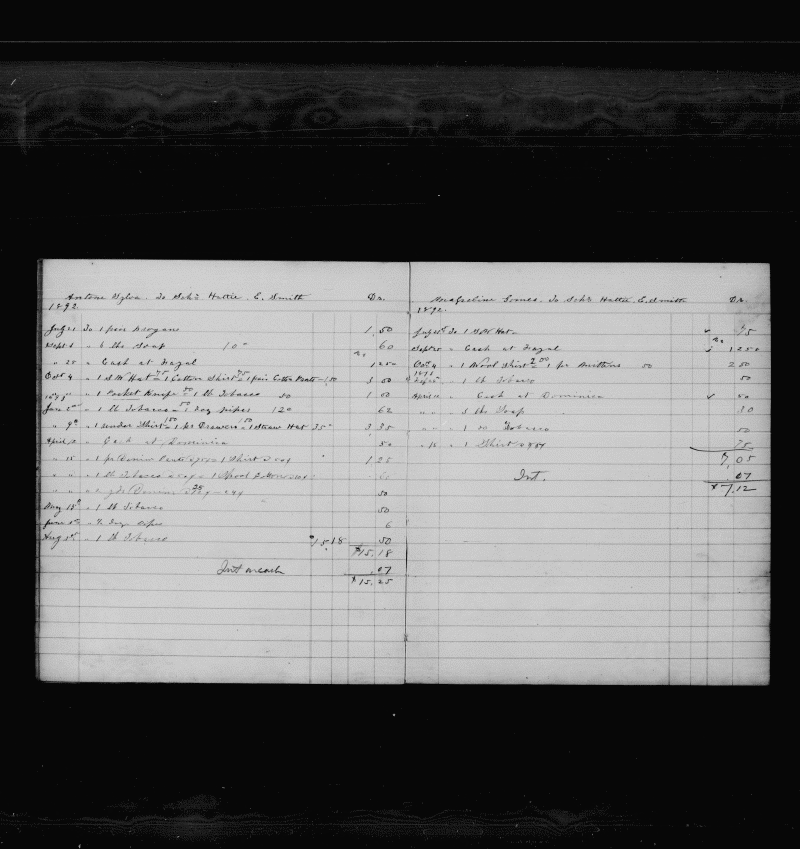 Antone Sylva. To Sch's Hattie. E. Smith Dr.
1892.
July 21 To 1 pair Brogans 1,50
Sept 1 " 6 lbs Soap 10c 60
" 20 " Cash at Fayal 12 50
Oct 4 " 1 S W Hat 75 " 1 Cotton Shirt 75 " 1 pair Cotton Pants 1 50 3 00
" 1 Pocket Knife 50 " 1 lb Tobacco 50 1 00
Jan " 1 lb Tobacco 50 " 1 Doz pipes 12c 62
" 9th " 1 under Shirt 1 50 " 1 pr Drawers 1 50 " 1 Straw Hat 35c 3 35
April " Cash at Dominica 50
" 15 " 1 pr Denim Pants " 1 Shirt 1 25
" " " 1 lb Tobacco " 1 Spool Cotton
" " " yds Denim 50
May " 1 lb Tobacco 50
June " ½ Doz pipes 6
Aug " 1 lb Tobacco $15,18 50
$15,18
Int on cash ,07
$15,25
Gomes. To Sch's Hattie. E. Smith Dr.
1892.
July To 1 S W Hat 75
Sept 20 " Cash at Fayal 1 2 50
Oct 4 " 1 Wool Shirt 2 00 " 1 pr Mittens 50 2 50
1893
" 1 lb Tobacco 50
April " Cash at Dominica 50
" " " 3 lbs Soap 30
" " " 1 lb Tobacco 50
" 15 " 1 Shirt 75
7,05
Int. ,07
$7,12